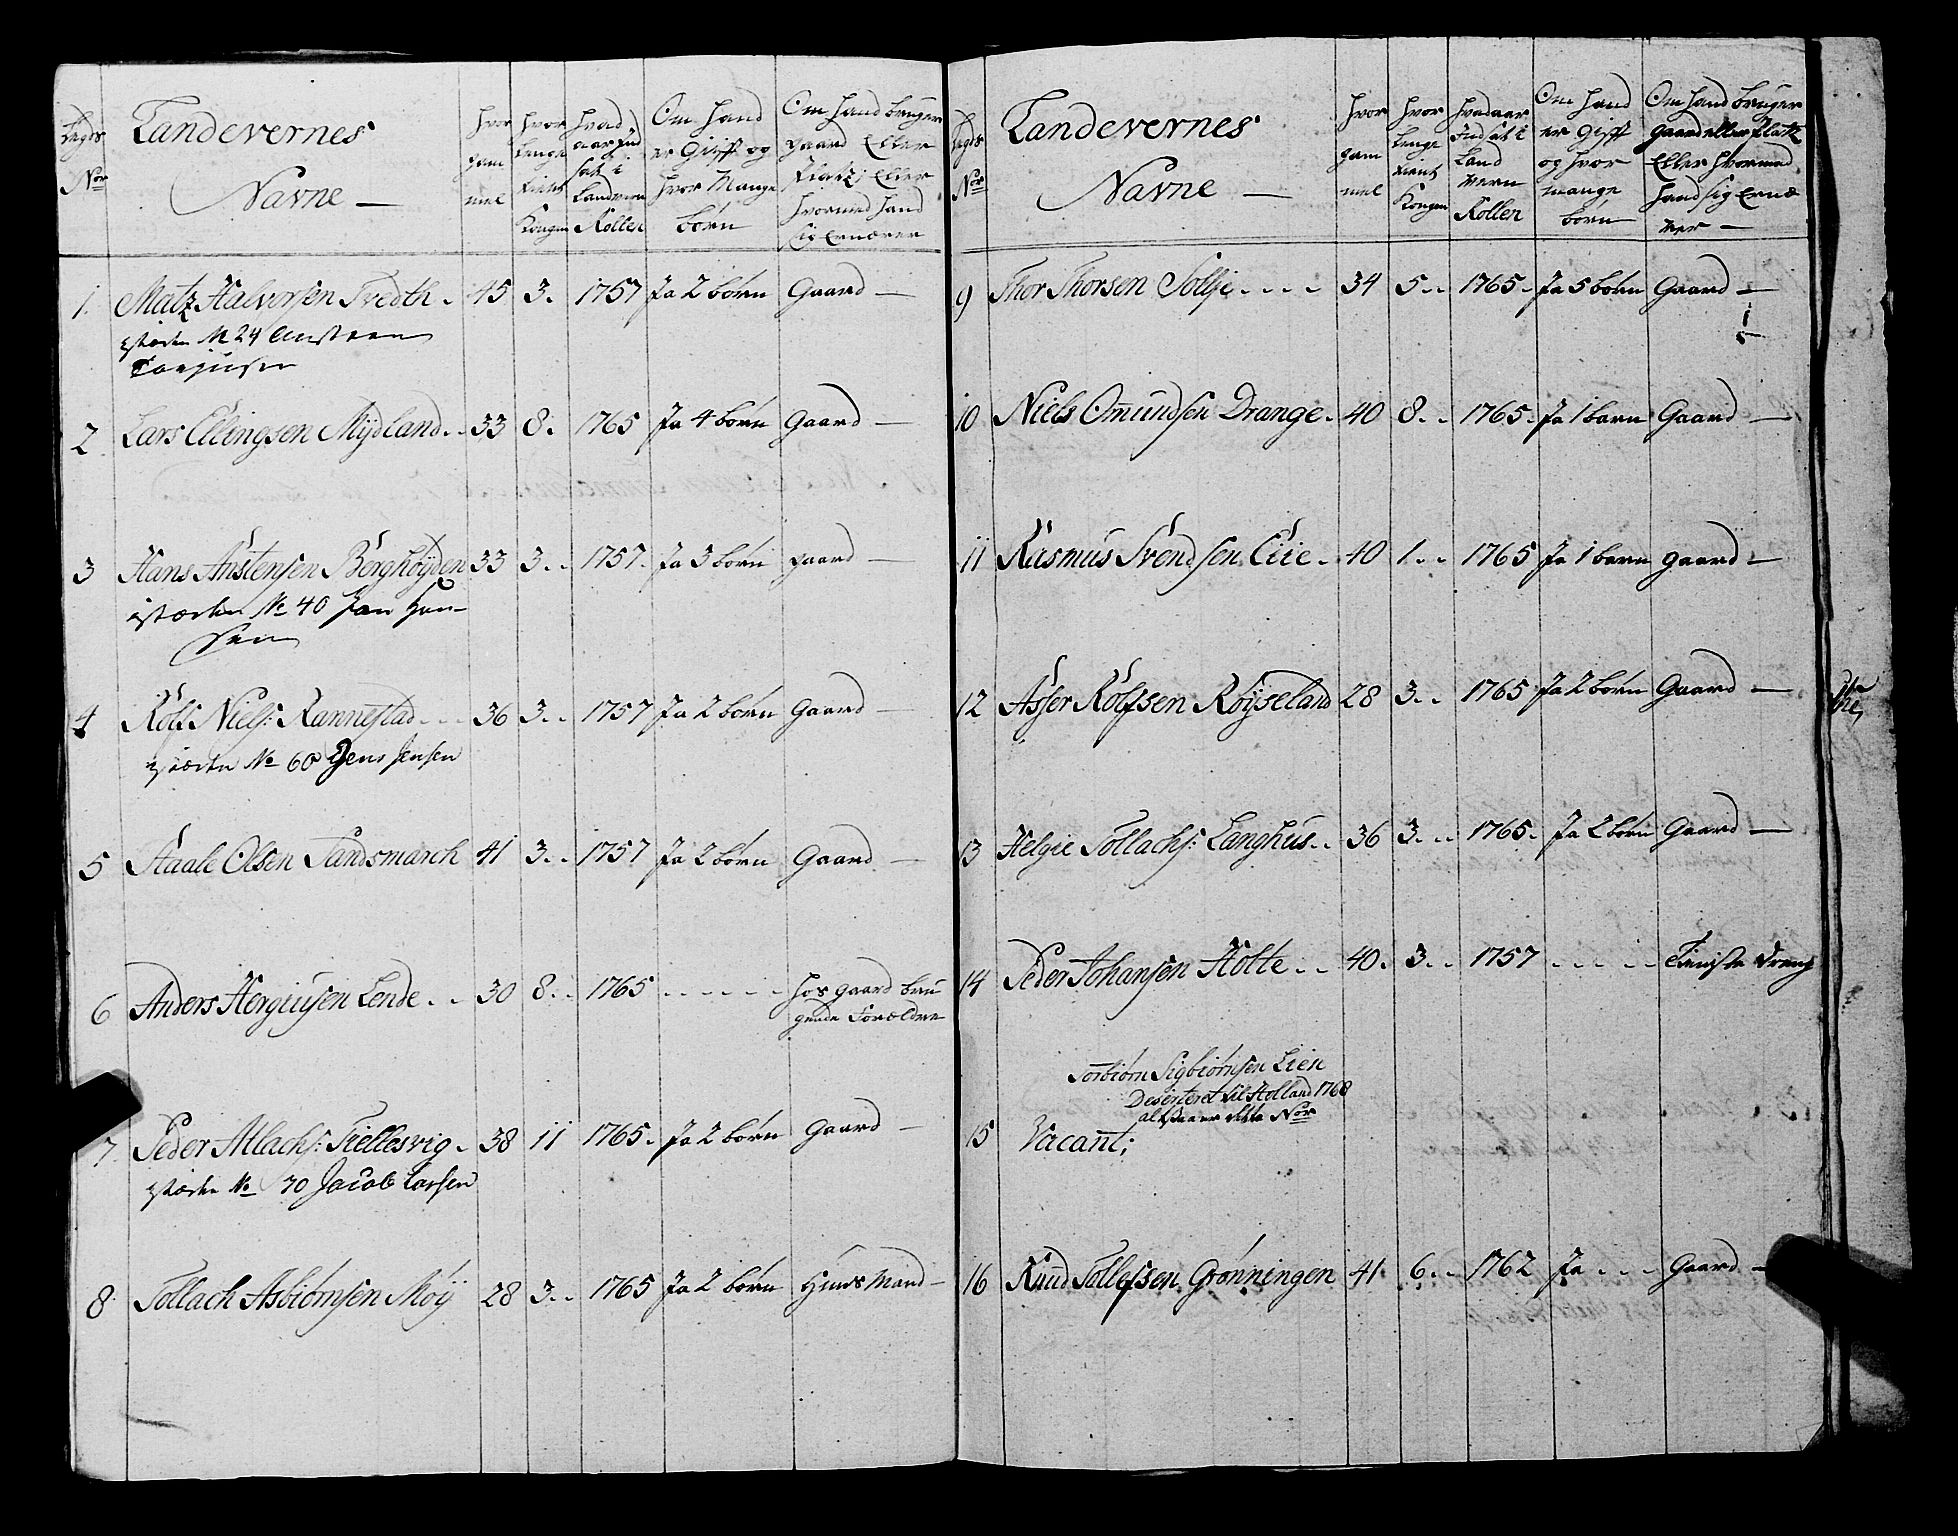 Legds
No:
Landevernes
Navne —
Hvor
gam
mel
Hvor
lenge
tient
Kongen
Hvad
aar ind
sat i
Landvern
Rollen
Om Hand
er Gifft og
Hvor Mange
børn
Om Hand bruger
gaard Eller
Platz, Eller
Hvormed Hand
sig Ernærer
1. Matz Halvorsen Tvedth . 45 3. 1757 Ja 2 børn Gaard —
No 24
2 Lars Ellingsen Mydland . . 33 8. 1765 Ja 4 børn Gaard —
3 Hans Anstensen Berghøyden 33 3. . 1757. Ja 3 børn gaard —
No 40 Jan Han-
sen
4 Rolf Niels: Rannestad . . . 36 3. . 1757 Ja 2 børn Gaard —
No 60 Jens Jensen
5 Staale Olsen Sandsmarch 41 3. . 1757 Ja 2 børn Gaard —
6 Anders Hergiusen Lende . . 30 8. . 1765 . . . . . . Hos gaard bru
gende Forældre
7. Peder Atlachs: Fiellesvig . 38 11 1765. Ja 2 børn Gaard —
No 70 Jacob Larsen
8. Tollach Asbiørnsen Møy 28 3. . 1765 Ja 2 børn Huus Mand —
Legds
No:
Landevernes
Navne —
Hvor
gam
mel
Hvor
lenge
tient
Kongen
Hvad aar
Indsat i
Land
vern
Rollen
Om Hand
er Gifft
og hvor
mange
børn
Om Hand bruger
gaard eller Platz
Eller Hvormed
Hand sig Ernæ
rer —
9 Thor Thorsen Sollie . . . . 34 5. . 1765. Ja 5 børn Gaard —
10 Niels Omundsen Drange . 40 8. . 1765. Ja 1 barn Gaard —
11 Rasmus Svendsen Eiie . 40 1. . 1765 Ja 1 barn gaard —
12 Asser Rolfsen Røyseland 28 3. . 1765 Ja 2 børn Gaard —
13 Helgie Tollachs: Langhus . . 36 3. . 1765. Ja 2 børn Gaard —
14 Peder Johansen Holte . . 40. 3. . 1757 . . . . . Tieniste Dreng
Torbiørn Sigbiørnsen Lien
Deserteret til Holland 1768
altsaa er dette Nor
15 Vacant;
16 Knud Tollefsen Grønningen 41. 6. . 1762 Ja . . . Gaard —